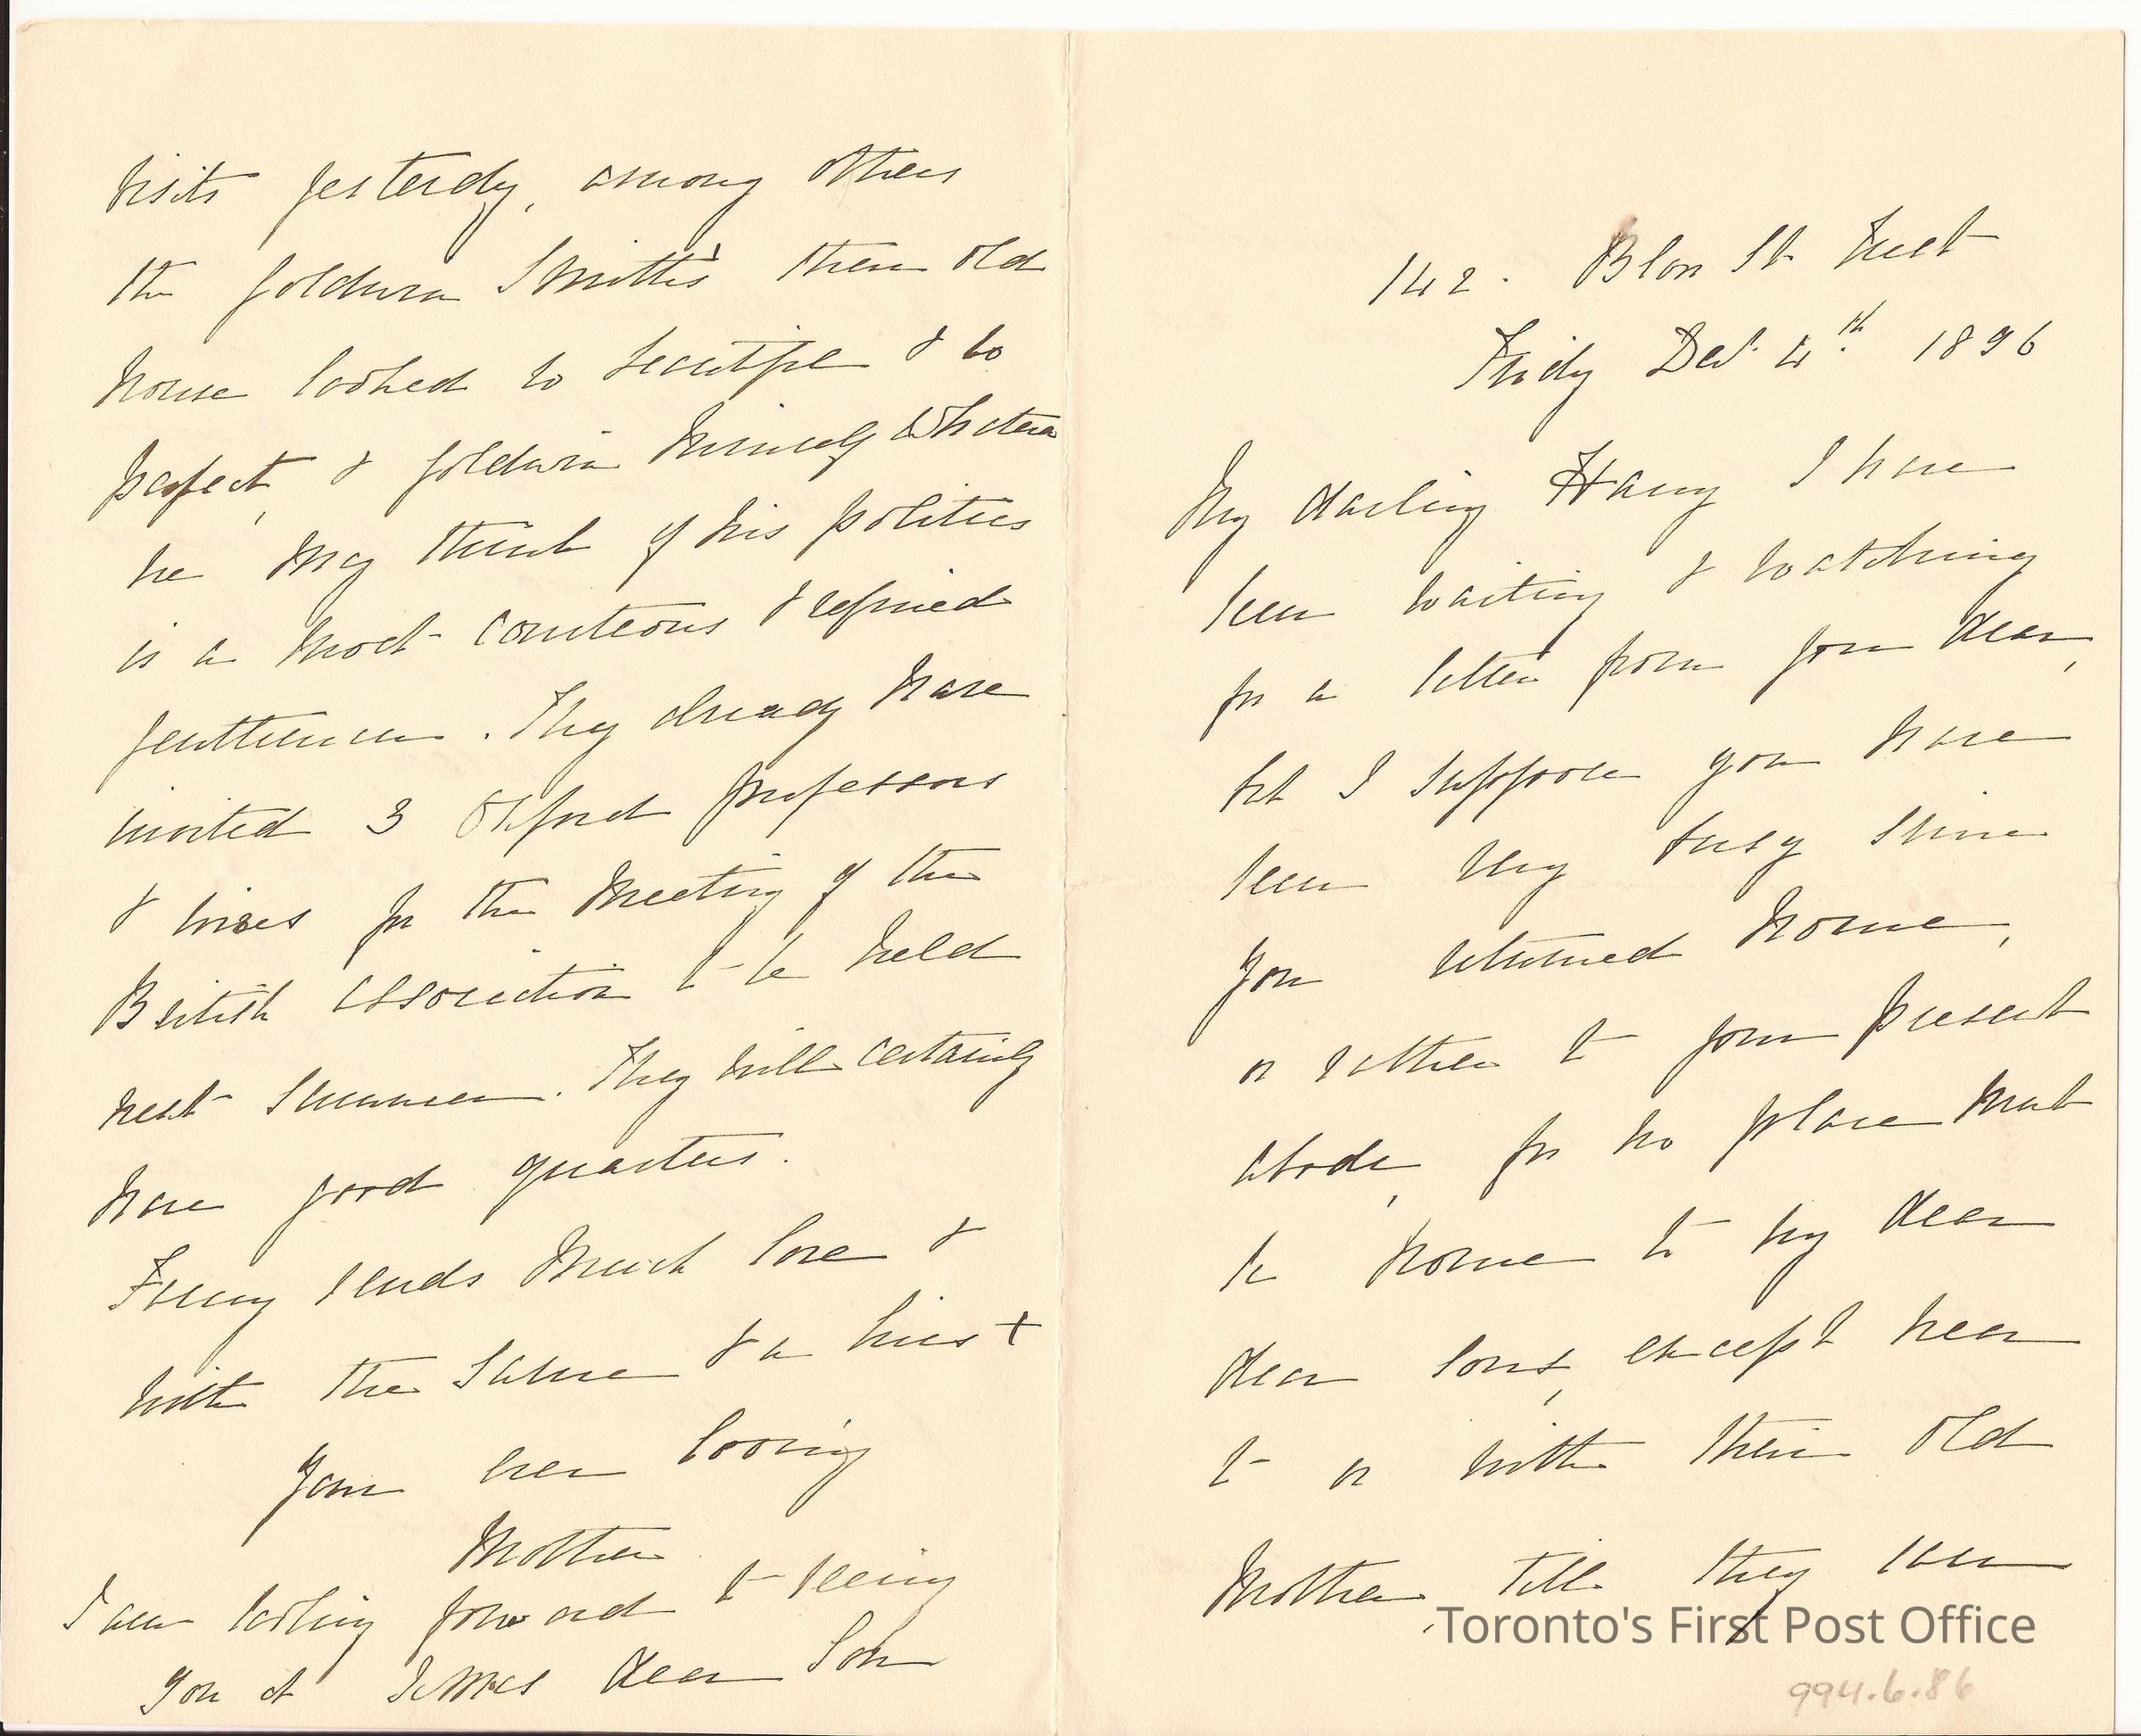 142. Bloor St West
Friday Dec. 4th 1896
My darling Harry I have
been waiting & watching
for a letter from you dear,
but I suppose you have
been very busy since
you returned home,
or rather to your present
abode, for no place must
be home to my dear
dear sons, except near
to or with their old
Mother, till they
Toronto's First Post Office
994.6.86
visits yesterdy, among others
the Goldwin Smith's their old
house looked so beautiful & so
perfect, & Goldwin himself whatever
we may think of his politics
is a most courteous & refined
gentleman. They already have
invited 3 Oxford professors
& wives for the Meeting of the
British Association to be held
next Summer. They will certainly
have good quarters.
Fanny sends much love &
with the same & a kiss x
Your ever loving
Mother
I am looking forward to seeing
you at Xmas dear Son